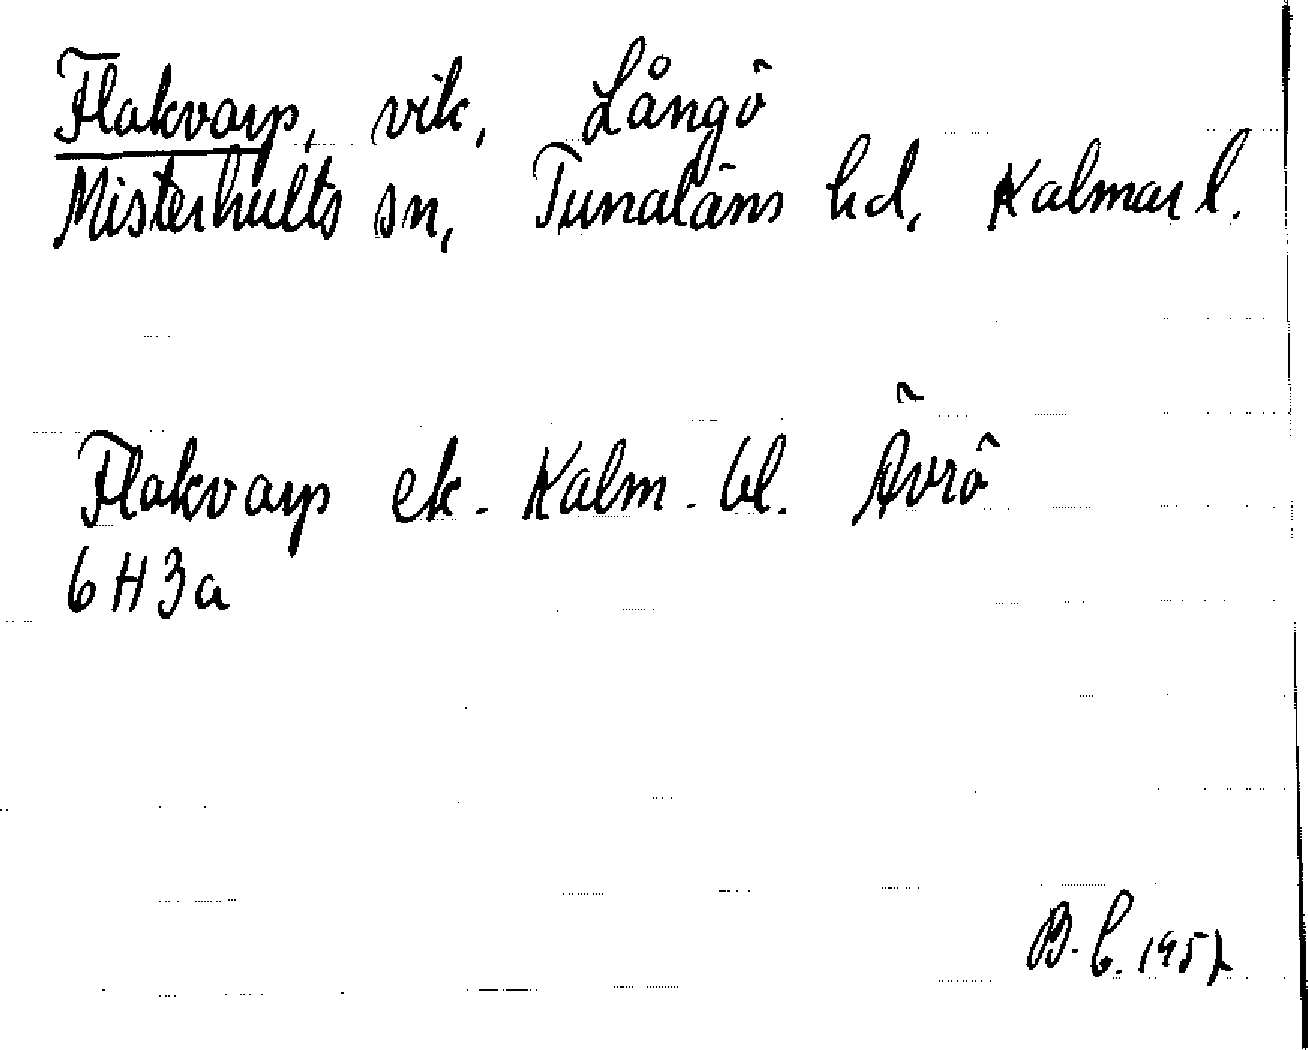 Flakvarp, vik, Långö
Misterhults sn, Tunaläns hd, Kalmar l.
Flakvarp ek. Kalm. bl. Ävrö
6H3a
B.C. 1957